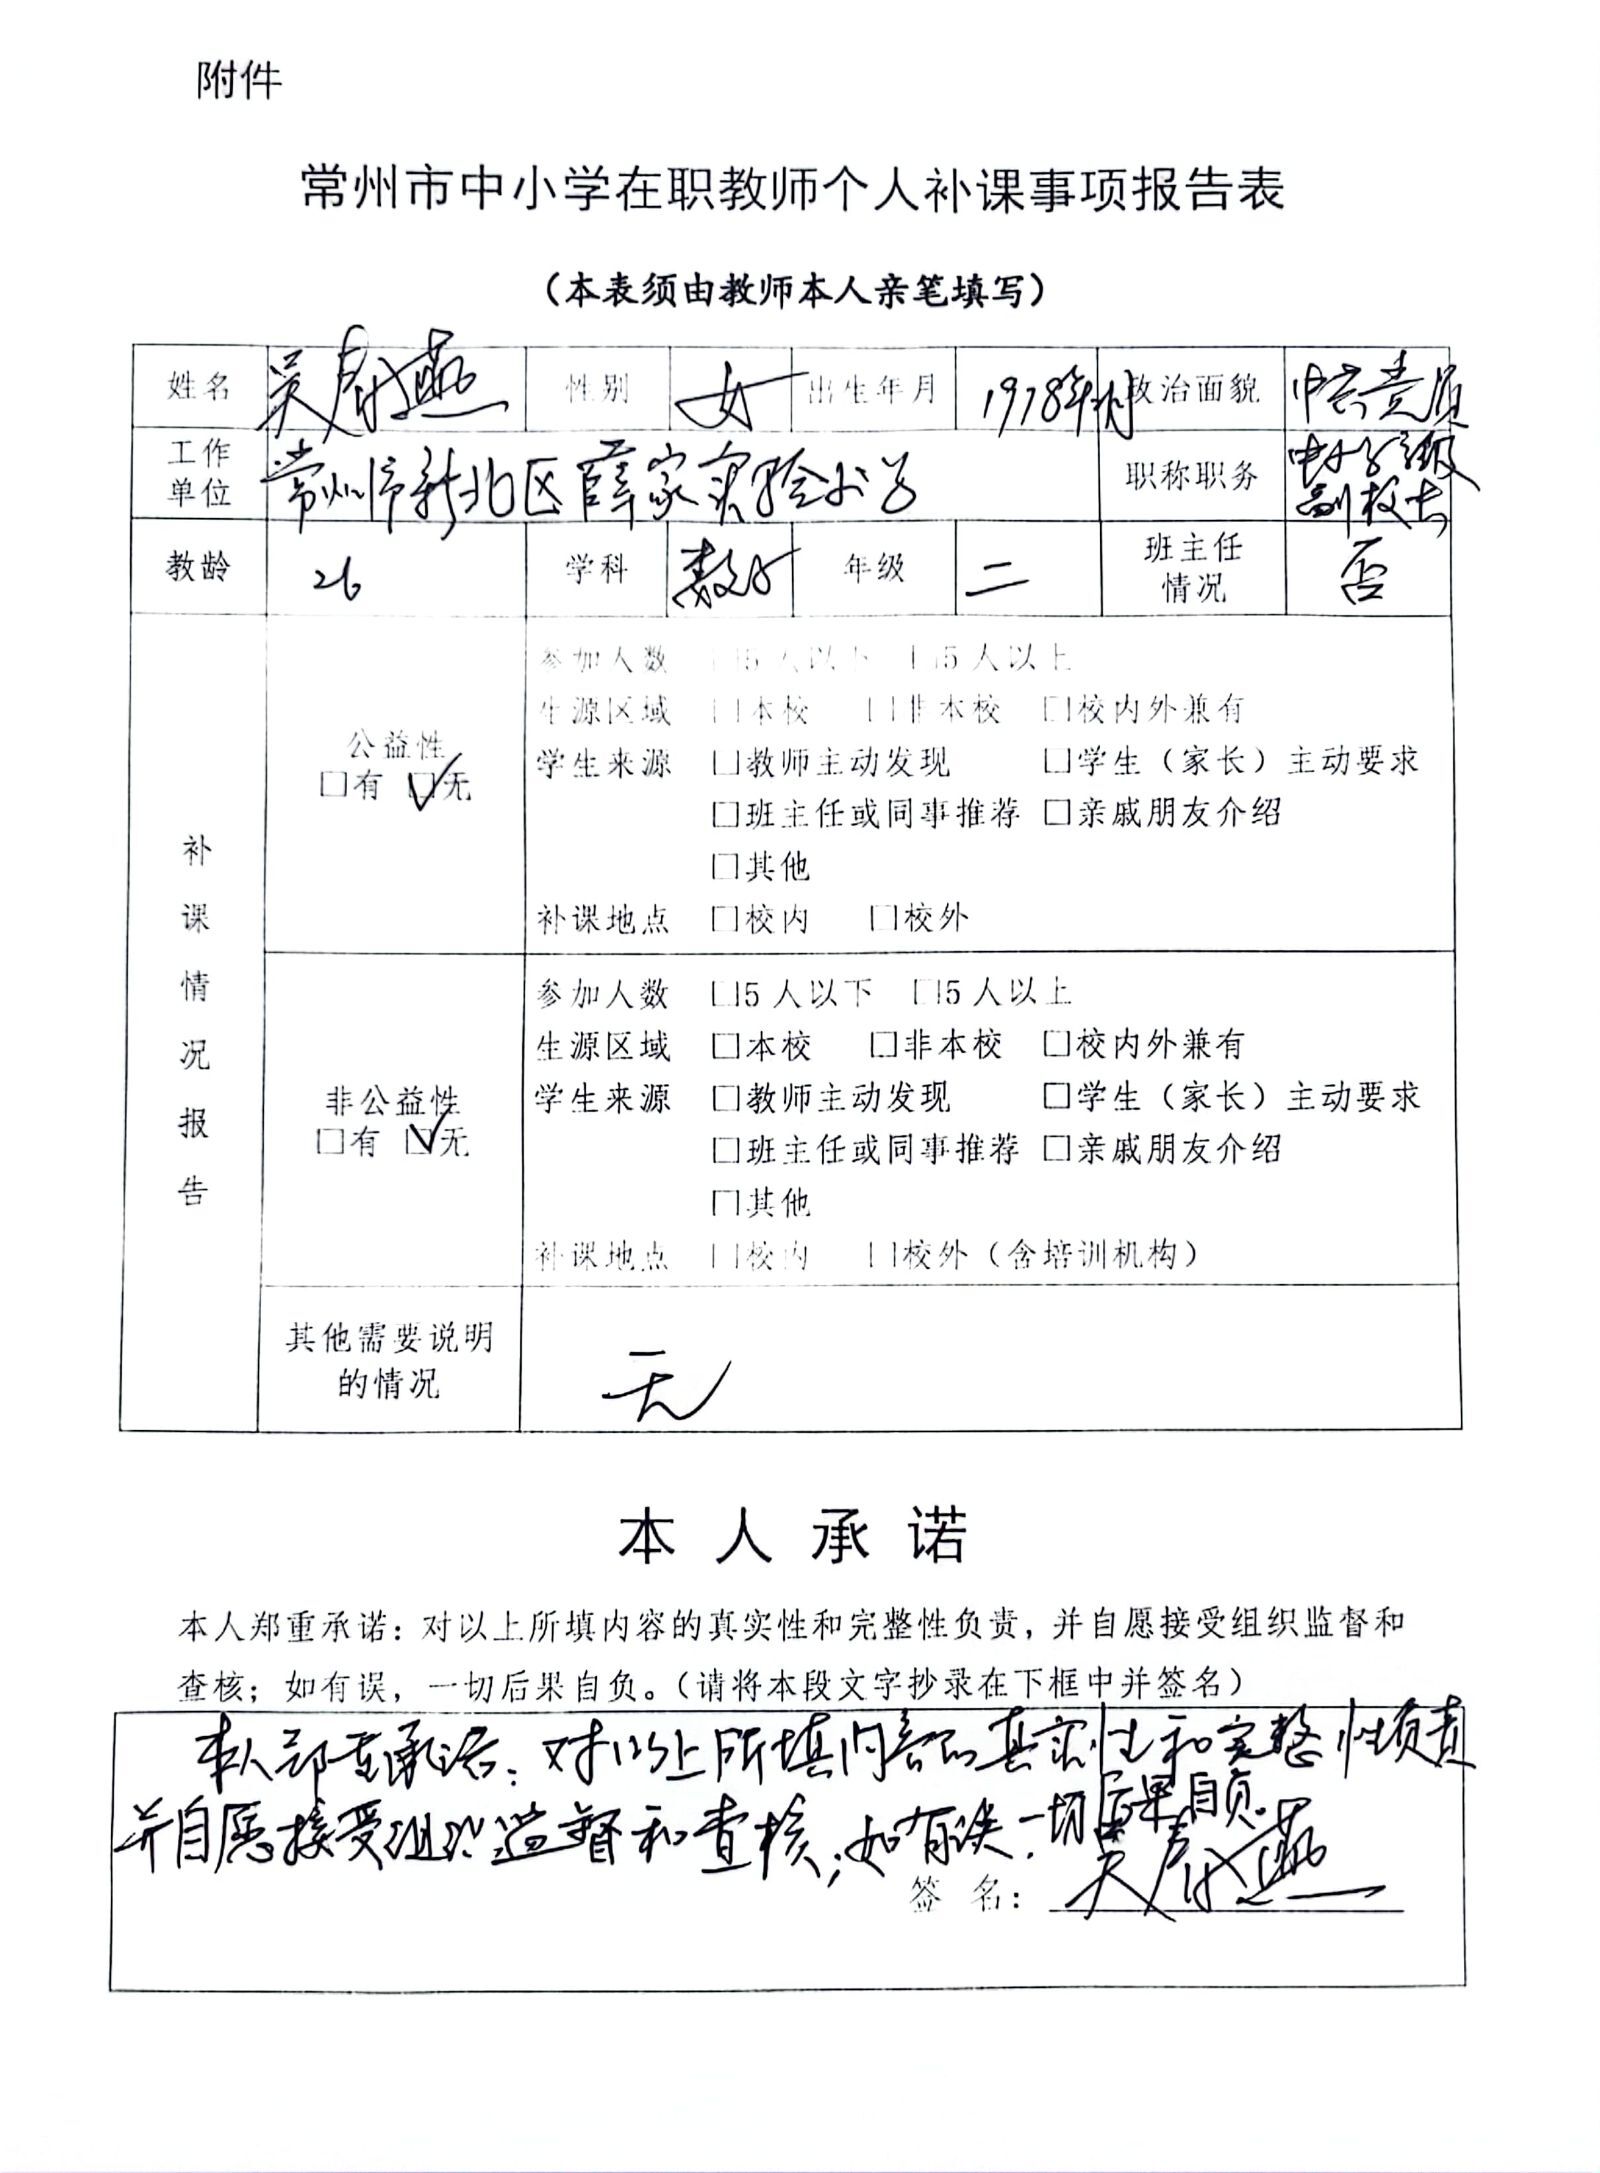 附件
常州市中小学在职教师个人补课事项报告表
（本表须由教师本人亲笔填写）
姓名 吴 燕 性别 女 出生年月 1978年 月 政治面貌 中共党员
工作单位 常州市新北区薛家实验小学 职称职务 副校长
教龄 26 学科 数学 年级 二 班主任情况 否
补课情况报告
公益性
□有 ☑无
参加人数 □5人以下 □5人以上
生源区域 □本校 □非本校 □校内外兼有
学生来源 □教师主动发现 □学生（家长）主动要求
□班主任或同事推荐 □亲戚朋友介绍
□其他
补课地点 □校内 □校外
非公益性
□有 ☑无
参加人数 □5人以下 □5人以上
生源区域 □本校 □非本校 □校内外兼有
学生来源 □教师主动发现 □学生（家长）主动要求
□班主任或同事推荐 □亲戚朋友介绍
□其他
补课地点 □校内 □校外（含培训机构）
其他需要说明的情况 无
本人承诺
本人郑重承诺：对以上所填内容的真实性和完整性负责，并自愿接受组织监督和
查核；如有误，一切后果自负。（请将本段文字抄录在下框中并签名）
本人郑重承诺：对以上所填内容的真实性和完整性负责
并自愿接受组织监督和查核；如有误，一切后果自负。
签名： 吴 燕